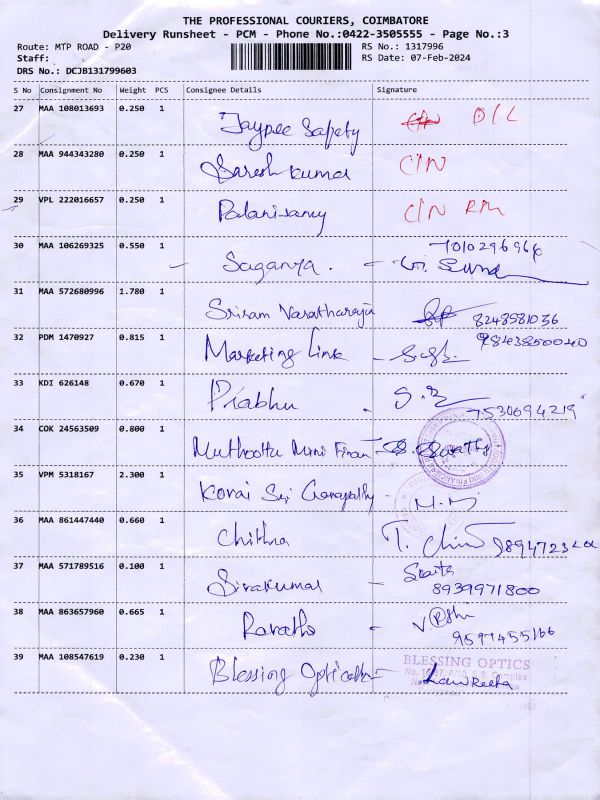 THE PROFESSIONAL COURIERS, COIMBATORE
Delivery Runsheet - PCM - Phone No.:0422-3505555 - Page No.:3
Route: MTP ROAD - P20 RS No.: 1317996
Staff: RS Date: 07-Feb-2024
DRS No.: DCJB131799603
S No Consignment No Weight PCS Consignee Details Signature
27 MAA 108013693 0.250 1 Jaypee Safety D/L
28 MAA 944343280 0.250 1 Suresh kumar C/N
29 VPL 222016657 0.250 1 Palanisamy C/N RM
30 MAA 106269325 0.550 1 Saganya.
31 MAA 572680996 1.780 1 Sriram Varatharaju 8248581036
32 PDM 1470927 0.815 1 Marketing Link 9843850040
33 KDI 626148 0.670 1 Prabhu 7530694219
34 COK 24563509 0.800 1 Muthoottu Mini Finan
35 VPM 5318167 2.300 1 Kovai Sri Ganapathy
36 MAA 861447440 0.660 1 Chithra
37 MAA 571789516 0.100 1 Sivakumar 8939971800
38 MAA 863657960 0.665 1
39 MAA 108547619 0.230 1 Blessing Opticals
BLESSING OPTICS